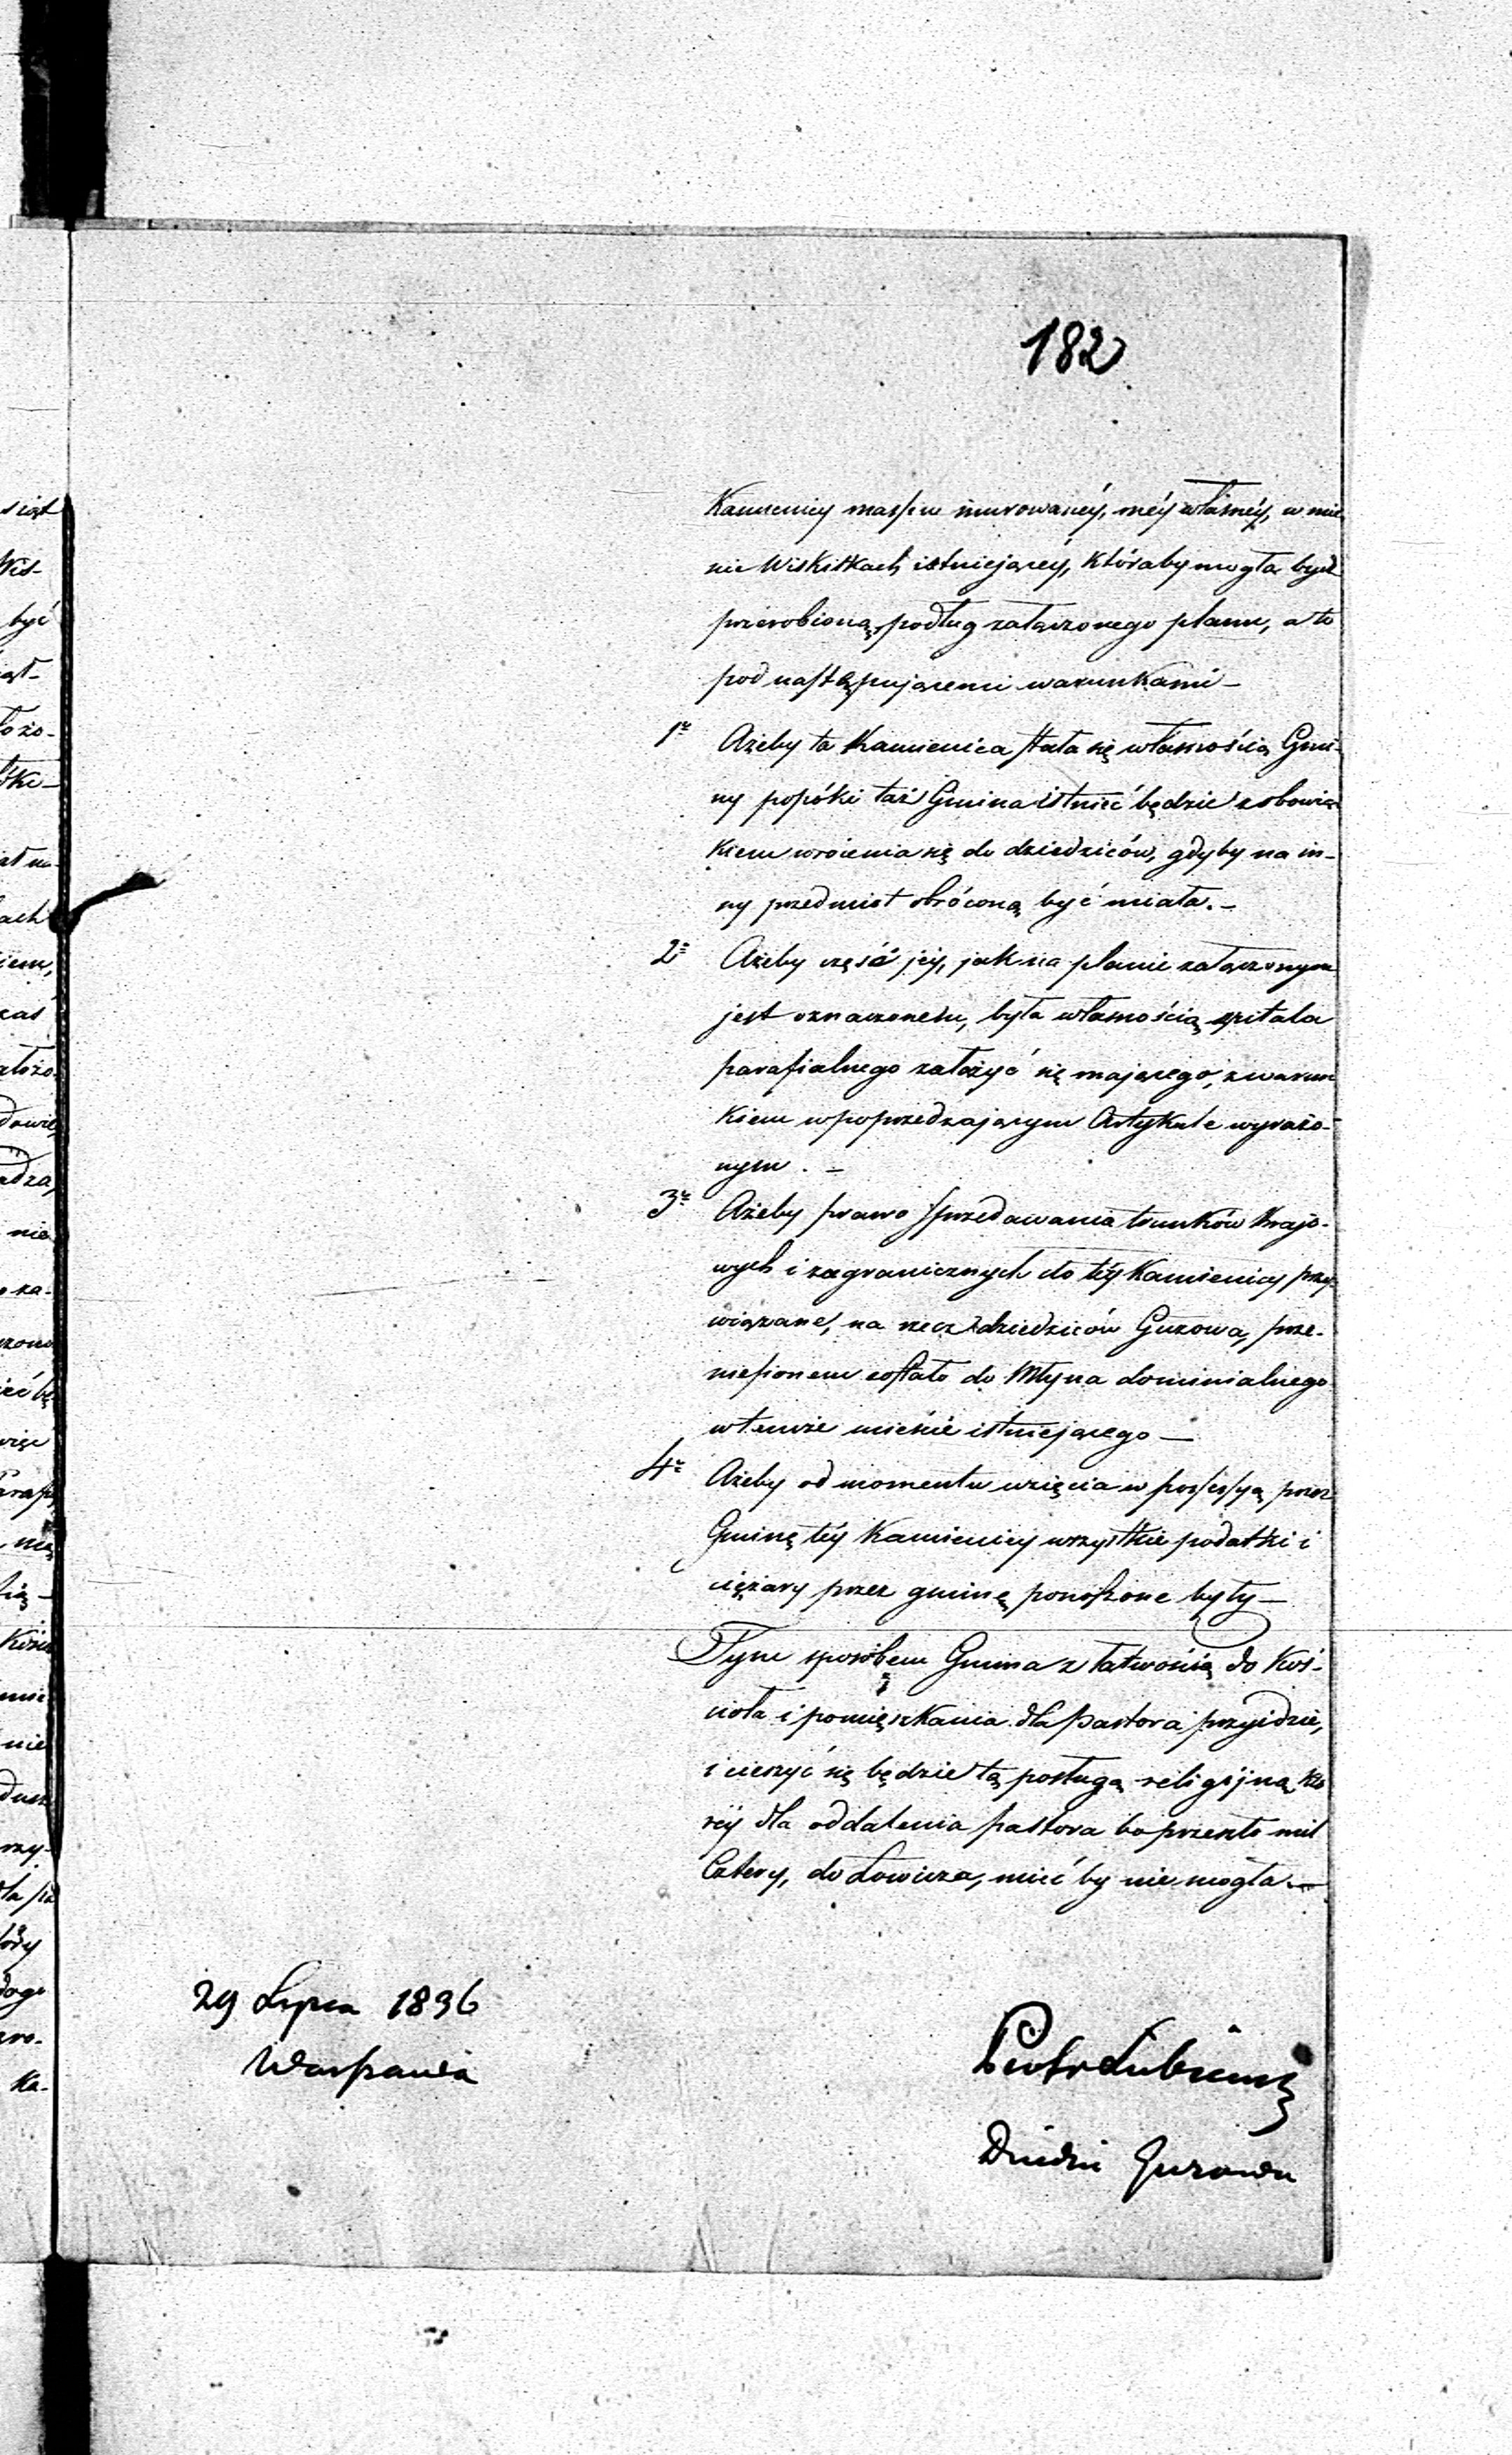 182
Kamienicy massiw murowanéy, méy własnéy, w mie
ście Wiskitkach istniejącéy, któraby mogła bydź
przerobioną, podług załączonego planu, a to
pod następującemi warunkami –
1e Ażeby ta Kamienica stała się własnością Gmi-
ny popóki taż Gmina istnieć będzie z obowiąz
kiem wrócenia się do dziedziców, gdyby na in-
ny przedmiot obróconą być miała. –
2e Ażeby część jéy, jak na planie załączonym
jest oznaczonem, była własnością szpitala
parafialnego założyć się mającego, z warun
kiem w poprzedzającym Artykule wyrażo-
nym. –
3e Ażeby prawo sprzedawania trunków Krajo-
wych i zagranicznych do téy Kamienicy przy-
wiązane, na rzecz dziedziców Guzowa, prze-
niesionem zostało do Młyna dominialnego
w temże mieście istniejącego –
4e Ażeby od momentu wzięcia w possessyą przez
Gminę téy Kamienicy wszystkie podatki i
ciężary przez gminę ponoszone były –
Tym sposobem Gmina z łatwością do Koś-
cioła i pomięszkania dla Pastora przyidzie,
i cieszyć się będzie tą posługą religijną, któ
réy dla oddalenia pastora bo przeszło mil
Cztery, do Łowicza, mieć by nie mogła. –
29 Lipca 1836
Warszawa
Piotr Łubieński
Dziedzic Guzowa